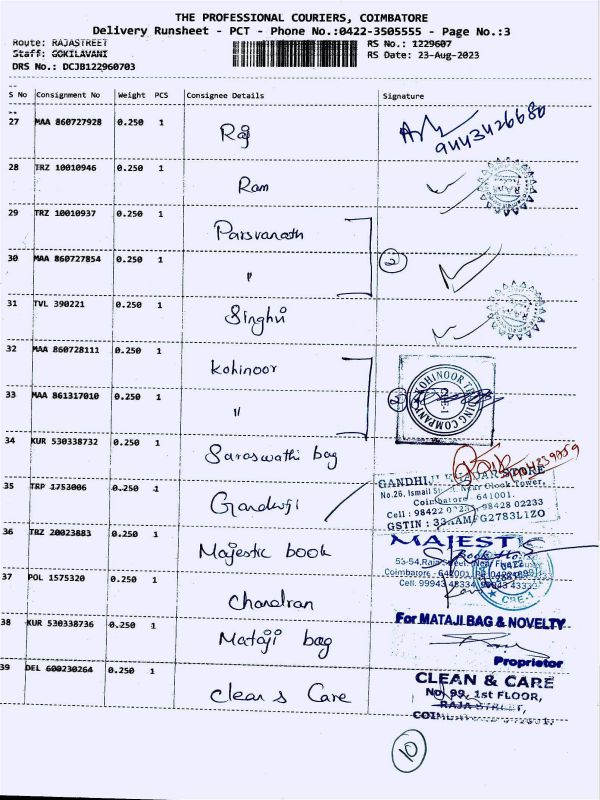 THE PROFESSIONAL COURIERS, COIMBATORE
Delivery Runsheet - PCT - Phone No.:0422-3505555 - Page No.:3
Route: RAJASTREET RS No.: 1229607
Staff: GOKILAVANI RS Date: 23-Aug-2023
DRS No.: DCJB122960703
S No Consignment No Weight PCS Consignee Details Signature
27 MAA 860727928 0.250 1 Raj 9443426680
28 TRZ 10010946 0.250 1 Ram
29 TRZ 10010937 0.250 1 Parsvanath
30 MAA 860727854 0.250 1 " 2
31 TVL 390221 0.250 1 Singhvi
32 MAA 860728111 0.250 1 Kohinoor
33 MAA 861317010 0.250 1 " 2
KOHINOOR TRADING COMPANY
34 KUR 530338732 0.250 1 Saraswathi bag
35 TRP 1753006 0.250 1 Gandhiji
GANDHIJI STORE
No.26, Ismail Near Clock Tower,
Coimbatore - 641001.
Cell : 98422 98428 02233
GSTIN : 33
36 TRZ 20023883 0.250 1 Majestic book
MAJESTIC
Book
53-54, Raja Street,
Coimbatore - 641001
Cell: 99943 48334, 99943 43333
CBE-1
37 POL 1575320 0.250 1 Chandran
38 KUR 530338736 0.250 1 Mataji bag
For MATAJI BAG & NOVELTY
Proprietor
39 DEL 600230264 0.250 1 Clean & Care
CLEAN & CARE
No. 99, 1st FLOOR,
RAJA STREET,
10